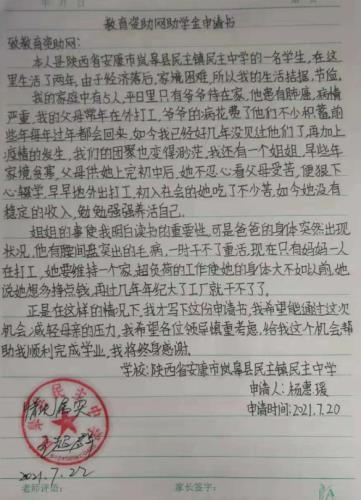 教育资助网助学金申请书
敬教育资助网:
本人是陕西省安康市岚皋县民主镇民主中学的一名学生,在这
里生活了两年,由于经济落后,家境困难,所以我的生活拮据,节俭。
我的家庭中有5人,平日里只有爷爷待在家,他患有肺癌,病情
严重,我的父母常年在外打工,爷爷的病花费了他们不少积蓄,前
些年每年过年都会回来,如今我已经好几年没见过他们了,再加上
疫情的发生,我们的团聚也变得渺茫,我还有一个姐姐,早些年
家境贫寒,父母供她上完初中后,她不忍心看父母受苦,便狠下
心辍学,早早地外出打工,初入社会的她吃了不少苦,如今她没有
稳定的收入,勉勉强强养活自己。
姐姐的事使我明白读书的重要性,可是爸爸的身体突然出现
状况,他有腰间盘突出的毛病,一时干不了重活,现在只有妈妈一人
在打工,她要维持一个家,超负荷的工作使她的身体大不如以前,她
说她想多挣点钱,再过几年年纪大了工厂就干不了了。
正是在这样的情况下,我才写下这份申请书,我希望能通过这次
机会,减轻父母的压力,我希望各位领导慎重考虑,给我这个机会,帮
助我顺利完成学业,我将终身感谢。
学校:陕西省安康市岚皋县民主镇民主中学
申请人:杨惠瑗
申请时间:2021.7.20
情况属实
2021.7.22
老师评语:
家长签字: